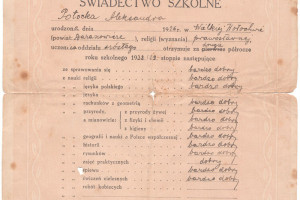 ŚWIADECTWO SZKOLNE
Potocka Aleksandra
urodzona dnia 1921 r. w
(powiat Baranowicze), religji (wyznania) prawosławnej
uczennica oddziału otrzymuje za pierwsze półrocze
roku szkolnego 1932/33 stopnie następujące
ze sprawowania się bardzo dobry
z nauki religji bardzo dobry
języka polskiego bardzo dobry
języka bardzo dobry
rachunków z geometrją bardzo dobry
przyrody, z przyrody żywej bardzo dobry
a mianowicie: z fizyki i chemji bardzo dobry
z higjeny bardzo dobry
geografji i nauki o Polsce współczesnej bardzo dobry
historji bardzo dobry
rysunków bardzo dobry
zajęć praktycznych dobry
śpiewu bardzo dobry
ćwiczeń cielesnych bardzo dobry
robót kobiecych bardzo dobry